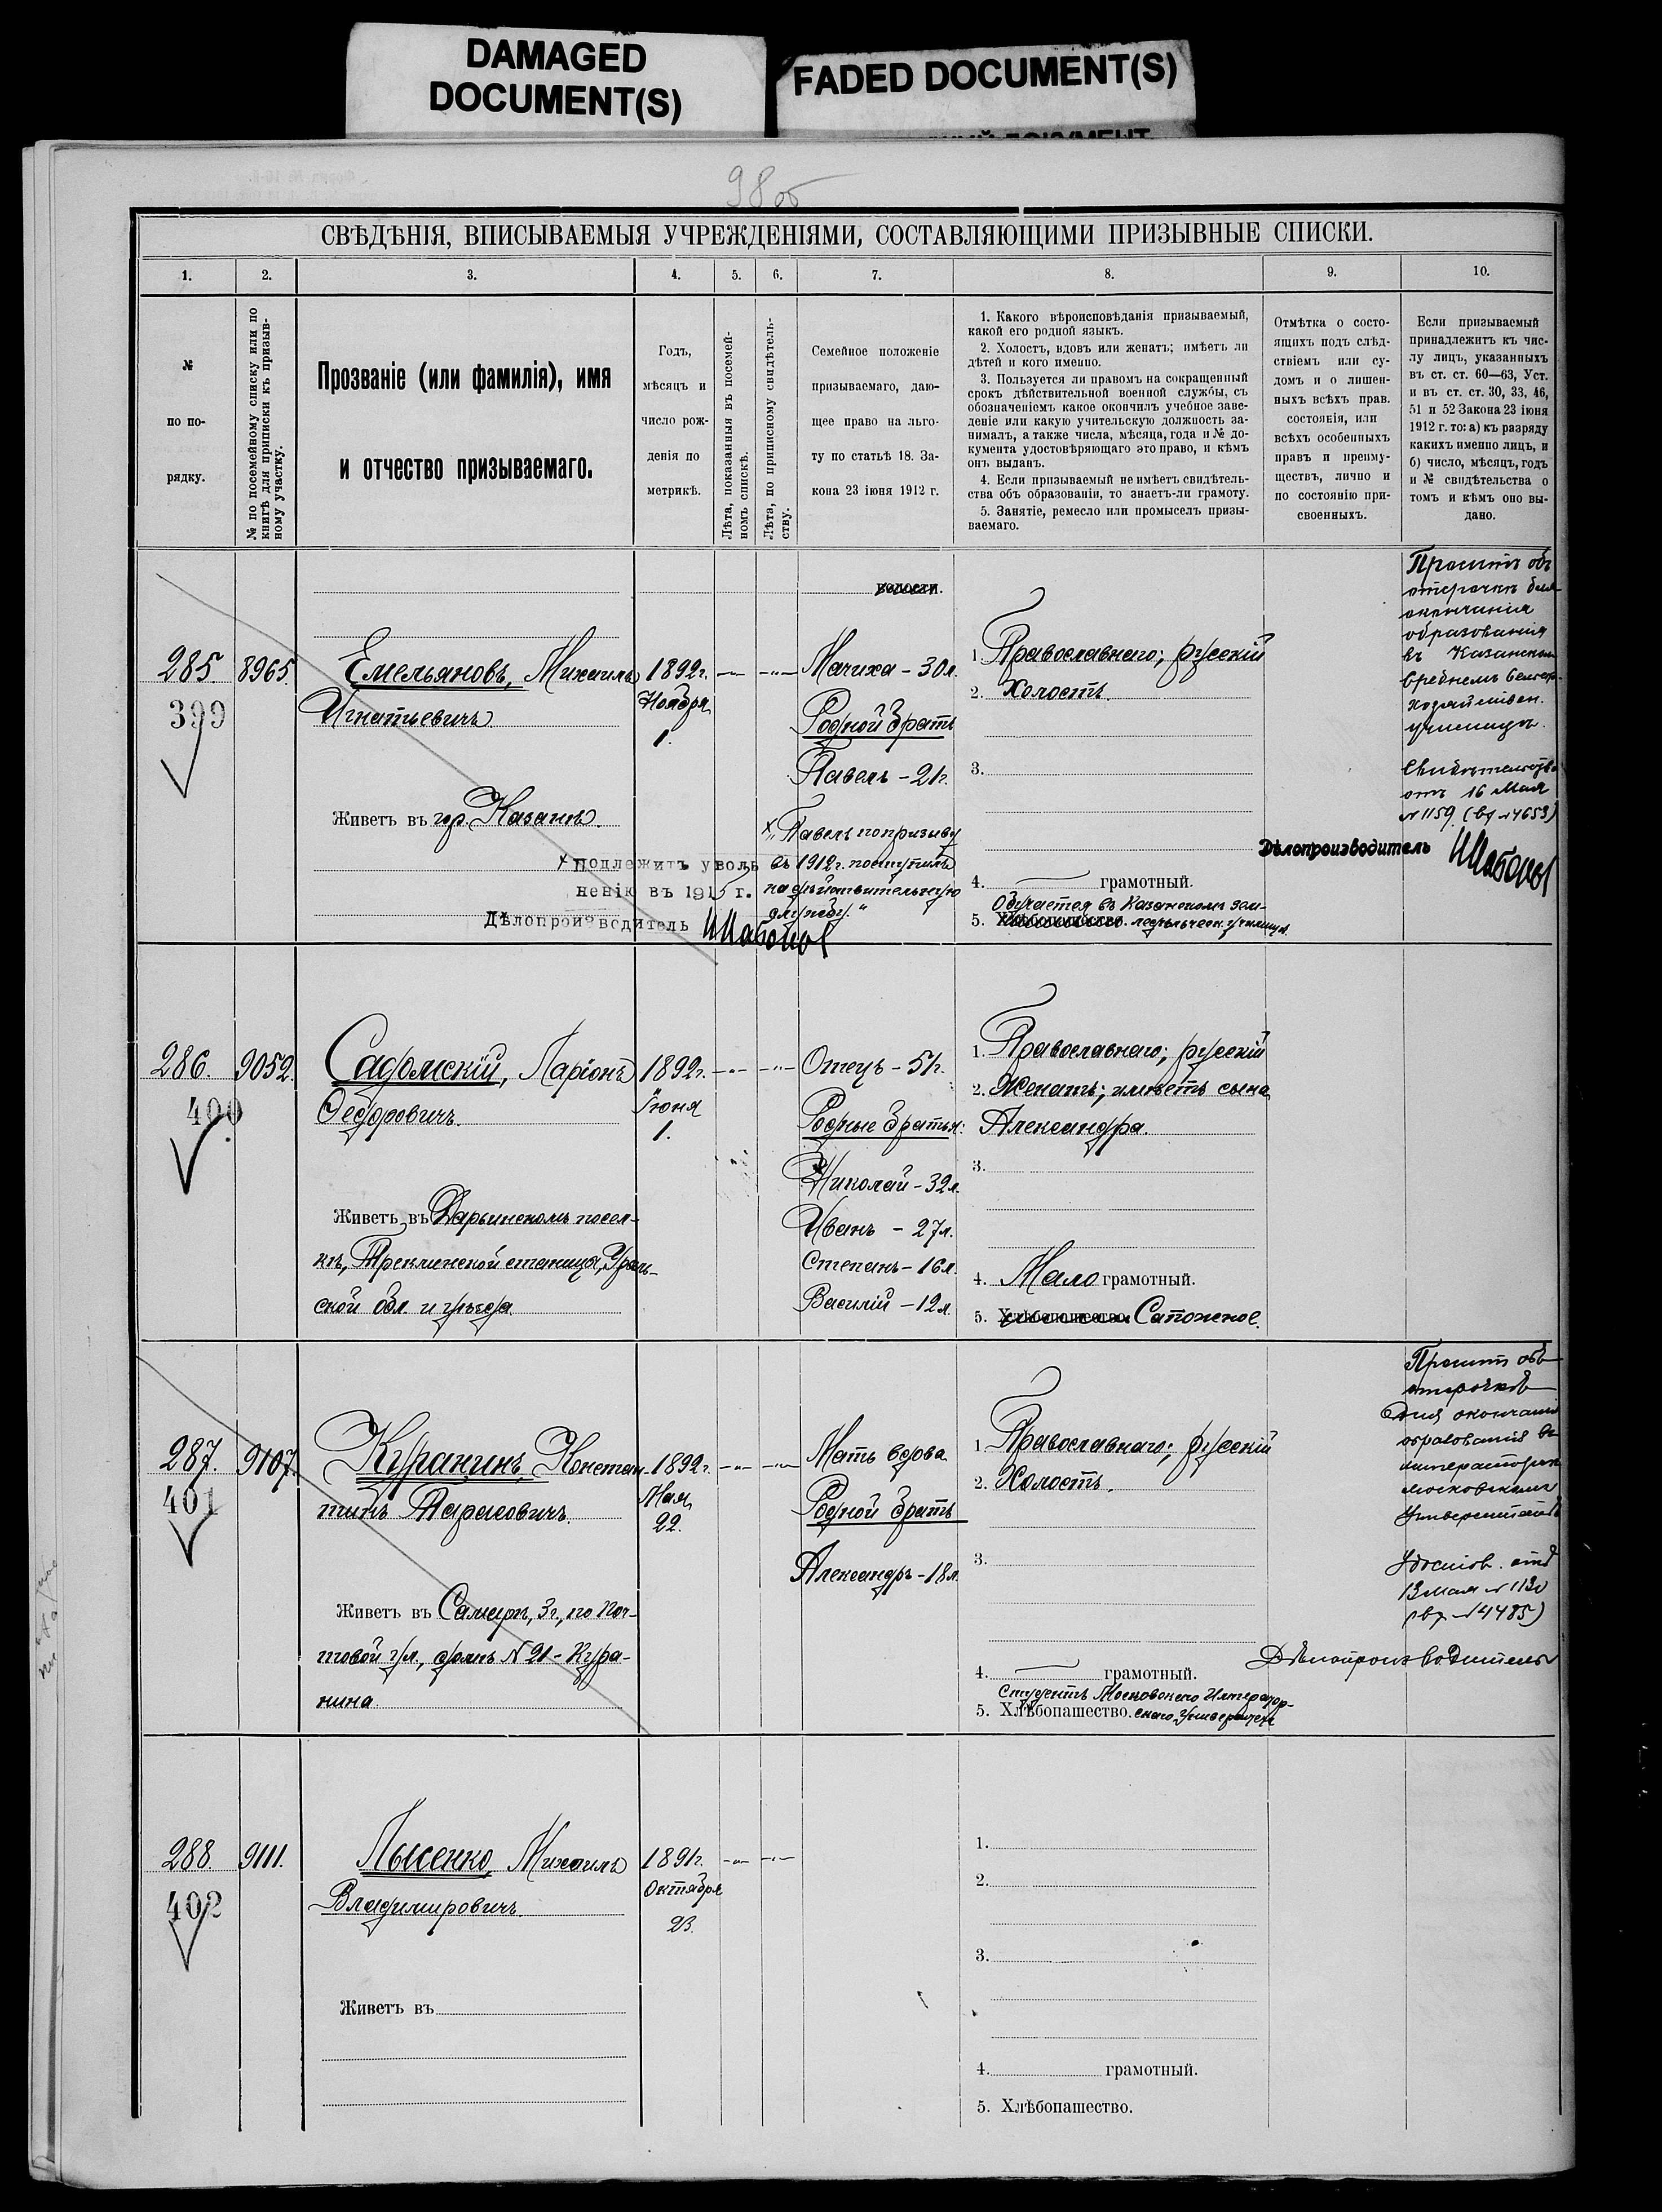 DAMAGED
DOCUMENT(S)
FADED DOCUMENT(S)
98 об
СВѢДѢНІЯ, ВПИСЫВАЕМЫЯ УЧРЕЖДЕНІЯМИ, СОСТАВЛЯЮЩИМИ ПРИЗЫВНЫЕ СПИСКИ.
1. 2. 3. 4. 5. 6. 7. 8. 9. 10.
№
по по-
рядку.
№ по посемейному списку или по
книгѣ для приписки къ призыв-
ному участку.
Прозваніе (или фамилія), имя
и отчество призываемаго.
Годъ,
мѣсяцъ и
число рож-
денія по
метрикѣ.
Лѣта, показанныя въ посемей-
номъ спискѣ.
Лѣта, по приписному свидѣтель-
ству.
Семейное положеніе
призываемаго, даю-
щее право на льго-
ту по статьѣ 18. За-
кона 23 іюня 1912 г.
1. Какого вѣроисповѣданія призываемый,
какой его родной языкъ.
2. Холостъ, вдовъ или женатъ; имѣетъ ли
дѣтей и кого именно.
3. Пользуется ли правомъ на сокращенный
срокъ дѣйствительной военной службы, съ
обозначеніемъ какое окончилъ учебное заве-
деніе или какую учительскую должность за-
нималъ, а также числа, мѣсяца, года и № до-
кумента удостовѣряющаго это право, и кѣмъ
онъ выданъ.
4. Если призываемый не имѣетъ свидѣтель-
ства объ образованіи, то знаетъ-ли грамоту.
5. Занятіе, ремесло или промыселъ призы-
ваемаго.
Отмѣтка о состо-
ящихъ подъ слѣд-
ствіемъ или су-
домъ и о лишен-
ныхъ всѣхъ прав.
состоянія, или
всѣхъ особенныхъ
правъ и преиму-
ществъ, лично и
по состоянію при-
своенныхъ.
Если призываемый
принадлежитъ къ чис-
лу лицъ, указанныхъ
въ ст. ст. 60—63, Уст.
и въ ст. ст. 30, 33, 46,
51 и 52 Закона 23 іюня
1912 г. то: а) къ разряду
какихъ именно лицъ, и
б) число, мѣсяцъ, годъ
и № свидѣтельства о
томъ и кѣмъ оно вы-
дано.
285. 8965.
399
Емельяновъ, Михаилъ
Игнатьевичъ
Живетъ въ гор. Казани.
× подлежитъ уволь
ненію въ 1915 г.
Дѣлопроизводитель
1892г.
Ноября
1.
волости.
Мачиха - 30л.
Родной братъ
Павелъ - 21г.
× "Павелъ по призыву
въ 1912г. поступилъ
на дѣйствительную
службу."
1. Православнаго; русскій
2. Холостъ.
3.
4. грамотный.
Обучается въ Казанскомъ зем-
5. Хлѣбопашество. ледѣльческ. училищѣ.
Проситъ объ
отсрочкѣ для
окончанія
образованія
въ Казанскомъ
среднемъ сельско-
хозяйствен.
училищѣ.
Свидѣтельство
отъ 16 Мая
№ 1159. (вх. № 4653)
Дѣлопроизводитель
286. 9052.
400
Садомскій, Ларіонъ
Ѳедоровичъ.
Живетъ въ Дарьинскомъ посел-
кѣ, Трекинской станицы, Ураль-
ской обл. и уѣзда
1892г.
Іюня
1.
Отецъ - 51г.
Родные братья:
Николай - 32л.
Иванъ - 27л.
Степанъ - 16л.
Василій - 12л.
1. Православнаго; русскій
2. Женатъ; имѣетъ сына
Александра.
3.
4. Мало грамотный.
5. Хлѣбопашество. Сапожное.
287. 9107.
401
Куранинъ, Констан-
тинъ Тарасовичъ.
Живетъ въ Самарѣ, 3г., по Поч-
товой ул., домъ № 21 - Кура-
нина.
1892г.
Мая
22.
Мать вдова
Родной братъ
Александръ - 18л.
1. Православнаго; русскій
2. Холостъ.
3.
4. грамотный.
Студентъ Московскаго Император-
5. Хлѣбопашество. скаго Университета
Проситъ объ
отсрочкѣ
для окончанія
образованія въ
императорск.
московскомъ
Университетѣ
Удостов. отъ
13 мая № 1130
(вх. № 4485)
Дѣлопроизводитель
288. 9111.
402
Лысенко, Михаилъ
Владимировичъ.
Живетъ въ
1891г.
Октября
23.
1.
2.
3.
4. грамотный.
5. Хлѣбопашество.